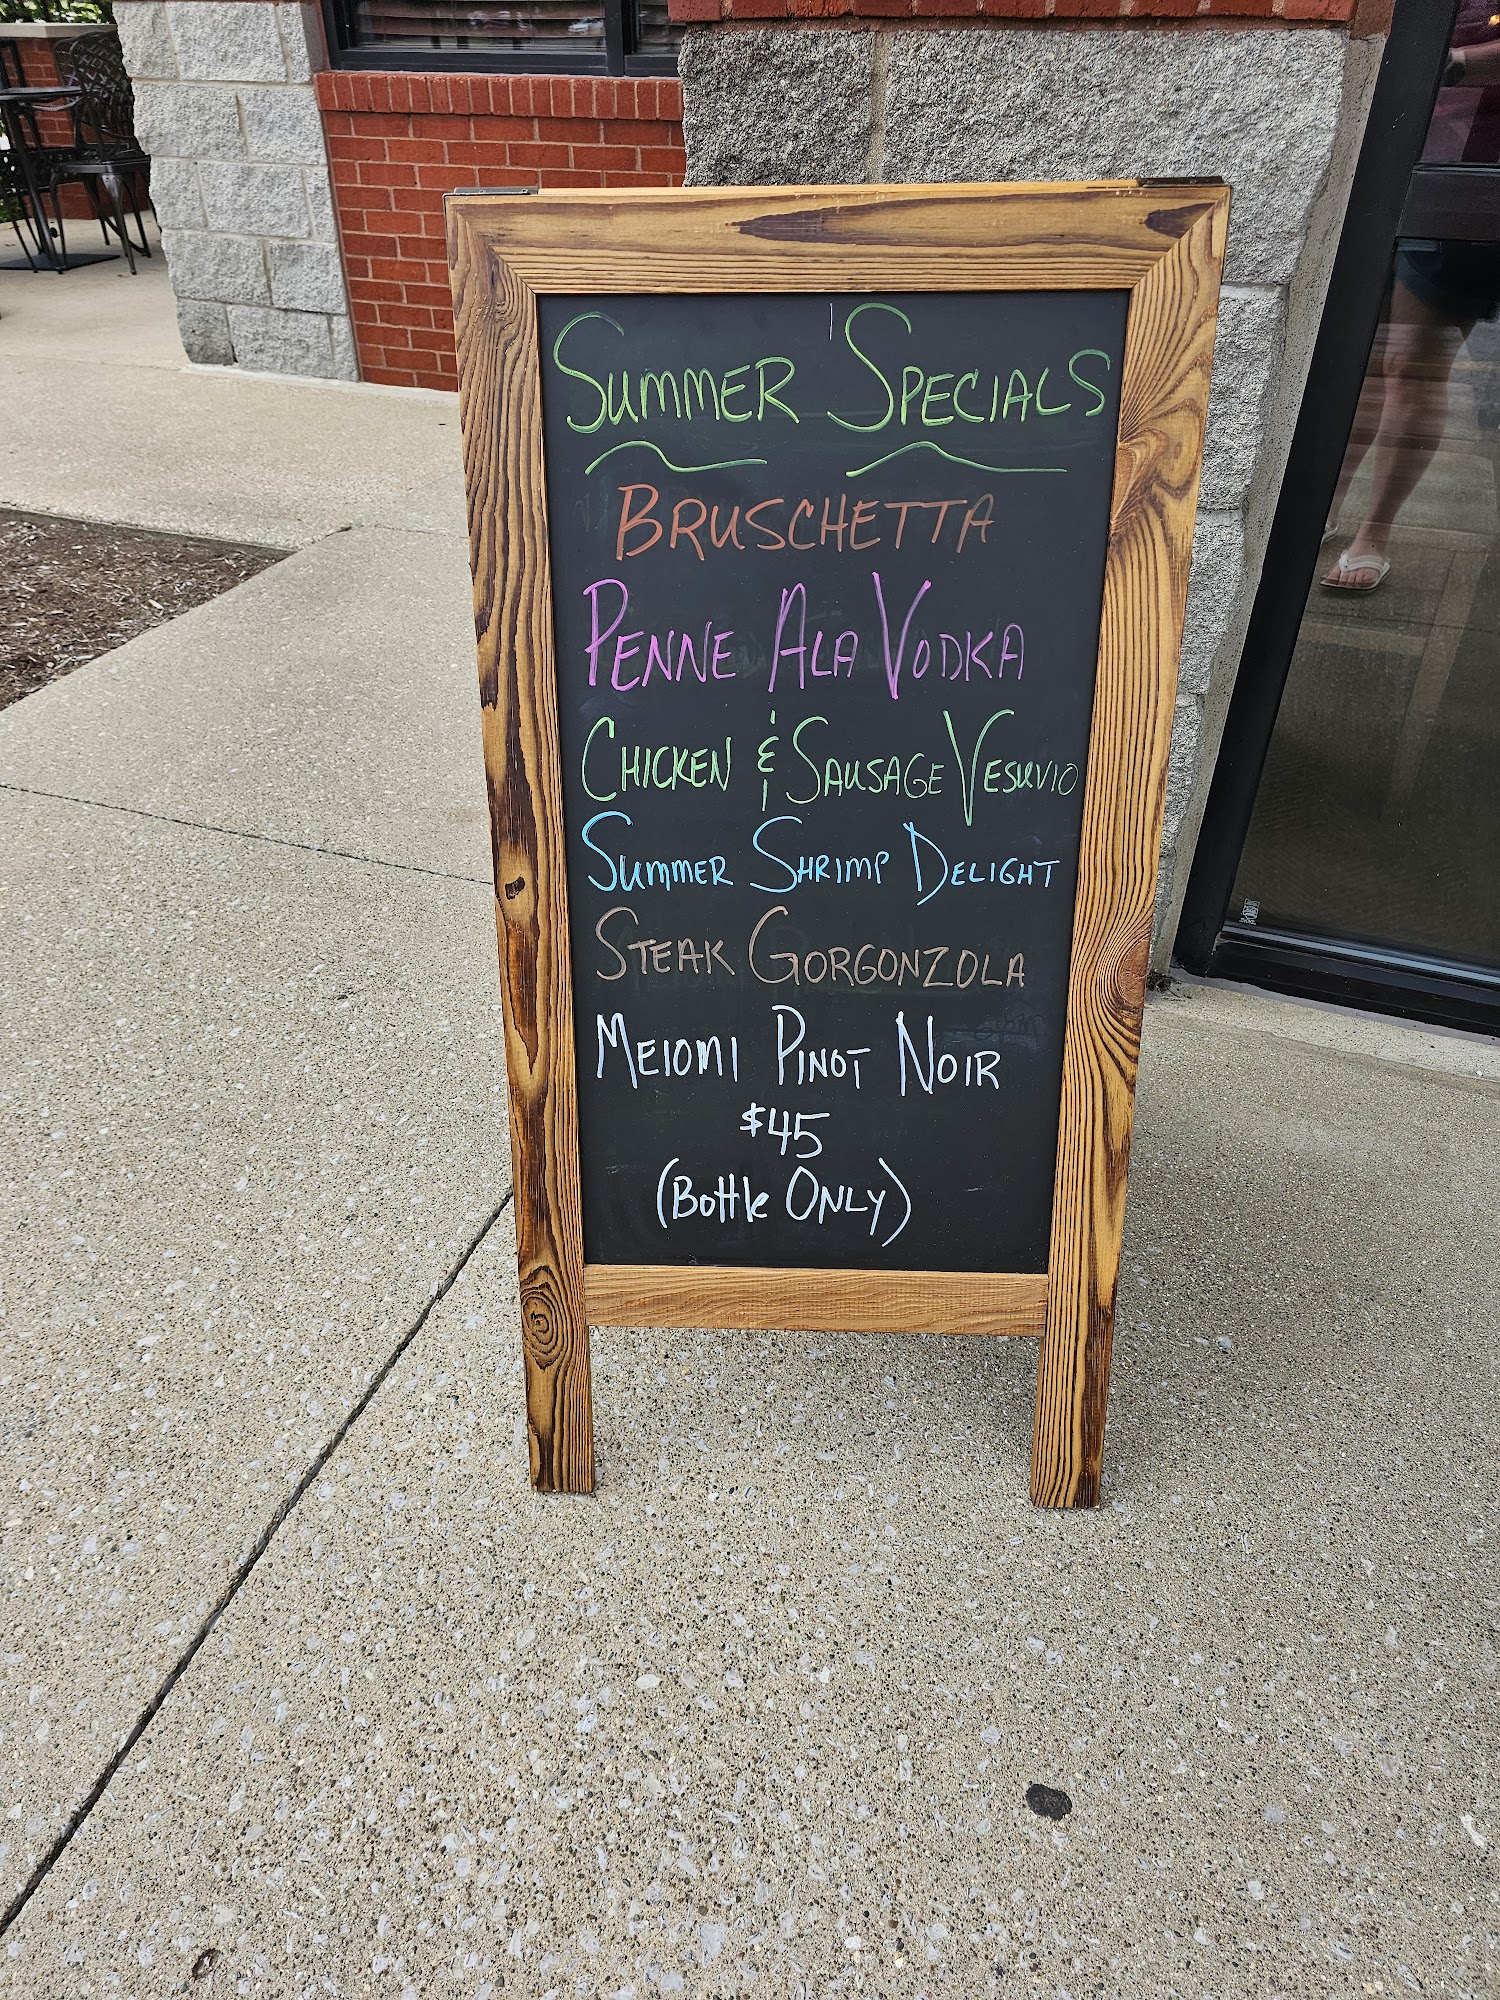 SUMMER SPECIALS
BRUSCHETTA
PENNE ALA VODKA
CHICKEN & SAUSAGE VESUVIO
SUMMER SHRIMP DELIGHT
STEAK GORGONZOLA
MEIOMI PINOT NOIR
$45
(BOttle ONLY)